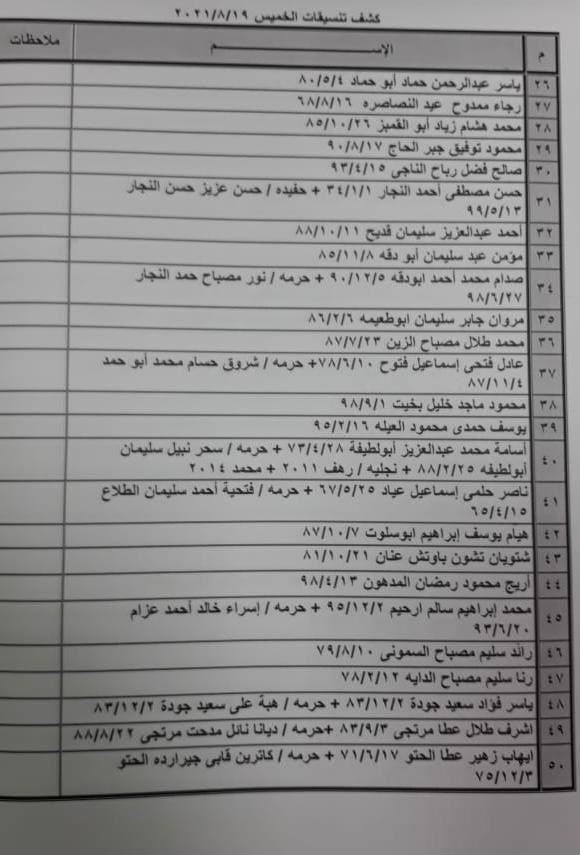 كشف تنسيقات الخميس ٢٠٢١/٨/١٩
م الإســـم ملاحظات
٢٦ ياسر عبدالرحمن حماد أبو حماد ٨٠/٥/٤
٢٧ رجاء ممدوح عيد النصاصره ٦٨/٨/١٦
٢٨ محمد هشام زياد أبو القمبز ٨٥/١٠/٢٦
٢٩ محمود توفيق جبر الحاج ٩٠/٨/١٧
٣٠ صالح فضل رباح الناجى ٩٣/٤/١٥
٣١ حسن مصطفى أحمد النجار ٣٤/١/١ + حفيده / حسن عزيز حسن النجار
٩٩/٥/١٣
٣٢ أحمد عبدالعزيز سليمان قديح ٨٨/١٠/١١
٣٣ مؤمن عبد سليمان أبو دقه ٨٥/١١/٨
٣٤ صدام محمد أحمد ابودقه ٩٠/١٢/٥ + حرمه / نور مصباح حمد النجار
٩٨/٦/٢٧
٣٥ مروان جابر سليمان ابوطعيمه ٨٦/٢/٦
٣٦ محمد طلال مصباح الزين ٨٧/٧/٢٣
٣٧ عادل فتحى إسماعيل فتوح ٧٨/٦/١٠+ حرمه / شروق حسام محمد أبو حمد
٨٧/١١/٤
٣٨ محمود ماجد خليل بخيت ٩٨/٩/١
٣٩ يوسف حمدى محمود العيله ٩٥/٢/١٦
٤٠ أسامة محمد عبدالعزيز أبولطيفة ٧٣/٤/٢٨ + حرمه / سحر نبيل سليمان
أبولطيفه ٨٨/٢/٢٥ + نجليه / رهف ٢٠١١ + محمد ٢٠١٤
٤١ ناصر حلمى إسماعيل عياد ٦٧/٥/٢٥ + حرمه / فتحية أحمد سليمان الطلاع
٦٥/٤/١٥
٤٢ هيام يوسف إبراهيم ابوسلوت ٨٧/١٠/٧
٤٣ شتويان تشون باوتش عنان ٨١/١٠/٢١
٤٤ أريج محمود رمضان المدهون ٩٨/٤/١٣
٤٥ محمد إبراهيم سالم ارحيم ٩٥/١٢/٢ + حرمه / إسراء خالد أحمد عزام
٩٣/٦/٢٠
٤٦ رائد سليم مصباح السمونى ٧٩/٨/١٠
٤٧ رنا سليم مصباح الدايه ٧٨/٢/١٢
٤٨ ياسر فؤاد سعيد جودة ٨٣/١٢/٢ + حرمه / هبة على سعيد جودة ٨٣/١٢/٢
٤٩ اشرف طلال عطا مرتجى ٨٣/٩/٣ +حرمه / ديانا نائل مدحت مرتجى ٨٨/٨/٢٢
٥٠ ايهاب زهير عطا الحتو ٧١/٦/١٧ + حرمه / كاترين قابى جيرارده الحتو
٧٥/١٢/٣